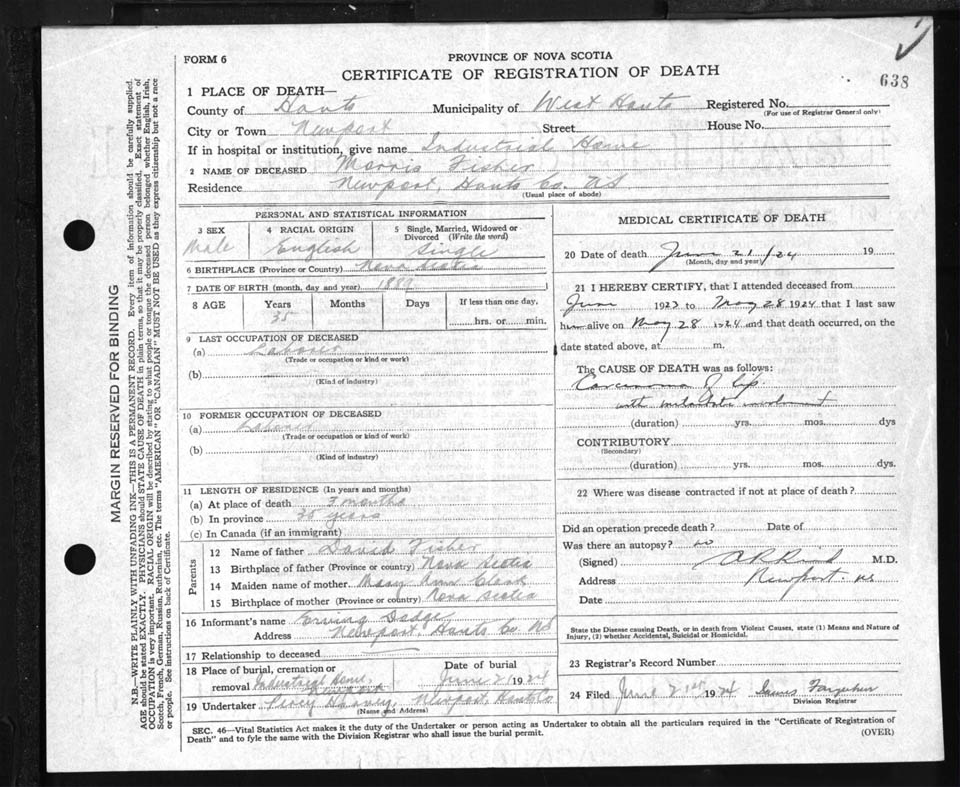 638
FORM 6
PROVINCE OF NOVA SCOTIA
CERTIFICATE OF REGISTRATION OF DEATH
1 PLACE OF DEATH—
County of Hants Municipality of West Hants Registered No.
(For use of Registrar General only)
City or Town Newport Street House No.
If in hospital or institution, give name Industrial Home
2 NAME OF DECEASED Morris Fisher
Residence Newport, Hants Co. NS
(Usual place of abode)
PERSONAL AND STATISTICAL INFORMATION
3 SEX 4 RACIAL ORIGIN 5 Single, Married, Widowed or Divorced (Write the word)
Male English Single
6 BIRTHPLACE (Province or Country) Nova Scotia
7 DATE OF BIRTH (month, day and year) 1889
8 AGE Years Months Days If less than one day,
35 hrs. or min.
9 LAST OCCUPATION OF DECEASED
(a) Laborer
(Trade or occupation or kind or work)
(b)
(Kind of industry)
10 FORMER OCCUPATION OF DECEASED
(a) Laborer
(Trade or occupation or kind of work)
(b)
(Kind of industry)
11 LENGTH OF RESIDENCE (In years and months)
(a) At place of death 7 months
(b) In province 35 years
(c) In Canada (if an immigrant)
Parents
12 Name of father David Fisher
13 Birthplace of father (Province or country) Nova Scotia
14 Maiden name of mother Mary Ann Clark
15 Birthplace of mother (Province or country) Nova Scotia
16 Informant's name Erving Dodge
Address Newport, Hants Co. NS
17 Relationship to deceased
18 Place of burial, cremation or removal Industrial Home, Newport
Date of burial June 21 1924
19 Undertaker Percy Harvey, Newport, Hants Co
(Name and Address)
MEDICAL CERTIFICATE OF DEATH
20 Date of death June 21/24 19
(Month, day and year)
21 I HEREBY CERTIFY, that I attended deceased from
June 1923 to May 28 1924 that I last saw
him alive on May 28 1924 and that death occurred, on the
date stated above, at m.
The CAUSE OF DEATH was as follows:
Carcinoma of lip
with involvement
(duration) yrs. mos. dys
CONTRIBUTORY
(Secondary)
(duration) yrs. mos. dys.
22 Where was disease contracted if not at place of death?
Did an operation precede death? Date of
Was there an autopsy? no
(Signed) M.D.
Address Newport. NS
Date
State the Disease causing Death, or in death from Violent Causes, state (1) Means and Nature of
Injury, (2) whether Accidental, Suicidal or Homicidal.
23 Registrar's Record Number
24 Filed June 21st 1924 James Farquhar
Division Registrar
SEC. 46—Vital Statistics Act makes it the duty of the Undertaker or person acting as Undertaker to obtain all the particulars required in the "Certificate of Registration of
Death" and to fyle the same with the Division Registrar who shall issue the burial permit.
(OVER)
MARGIN RESERVED FOR BINDING
N.B.—WRITE PLAINLY WITH UNFADING INK—THIS IS A PERMANENT RECORD. Every item of information should be carefully supplied.
AGE should be stated EXACTLY. PHYSICIANS should STATE CAUSE OF DEATH in plain terms, so that it may be properly classified. Exact statement of
OCCUPATION is very important. RACIAL ORIGIN will be described by stating to what people or tongue the deceased person belonged whether English, Irish,
Scotch, French, German, Russian, Ruthenian, etc. The terms "AMERICAN" OR "CANADIAN" MUST NOT BE USED as they express citizenship but not a race
or people. See instructions on back of Certificate.